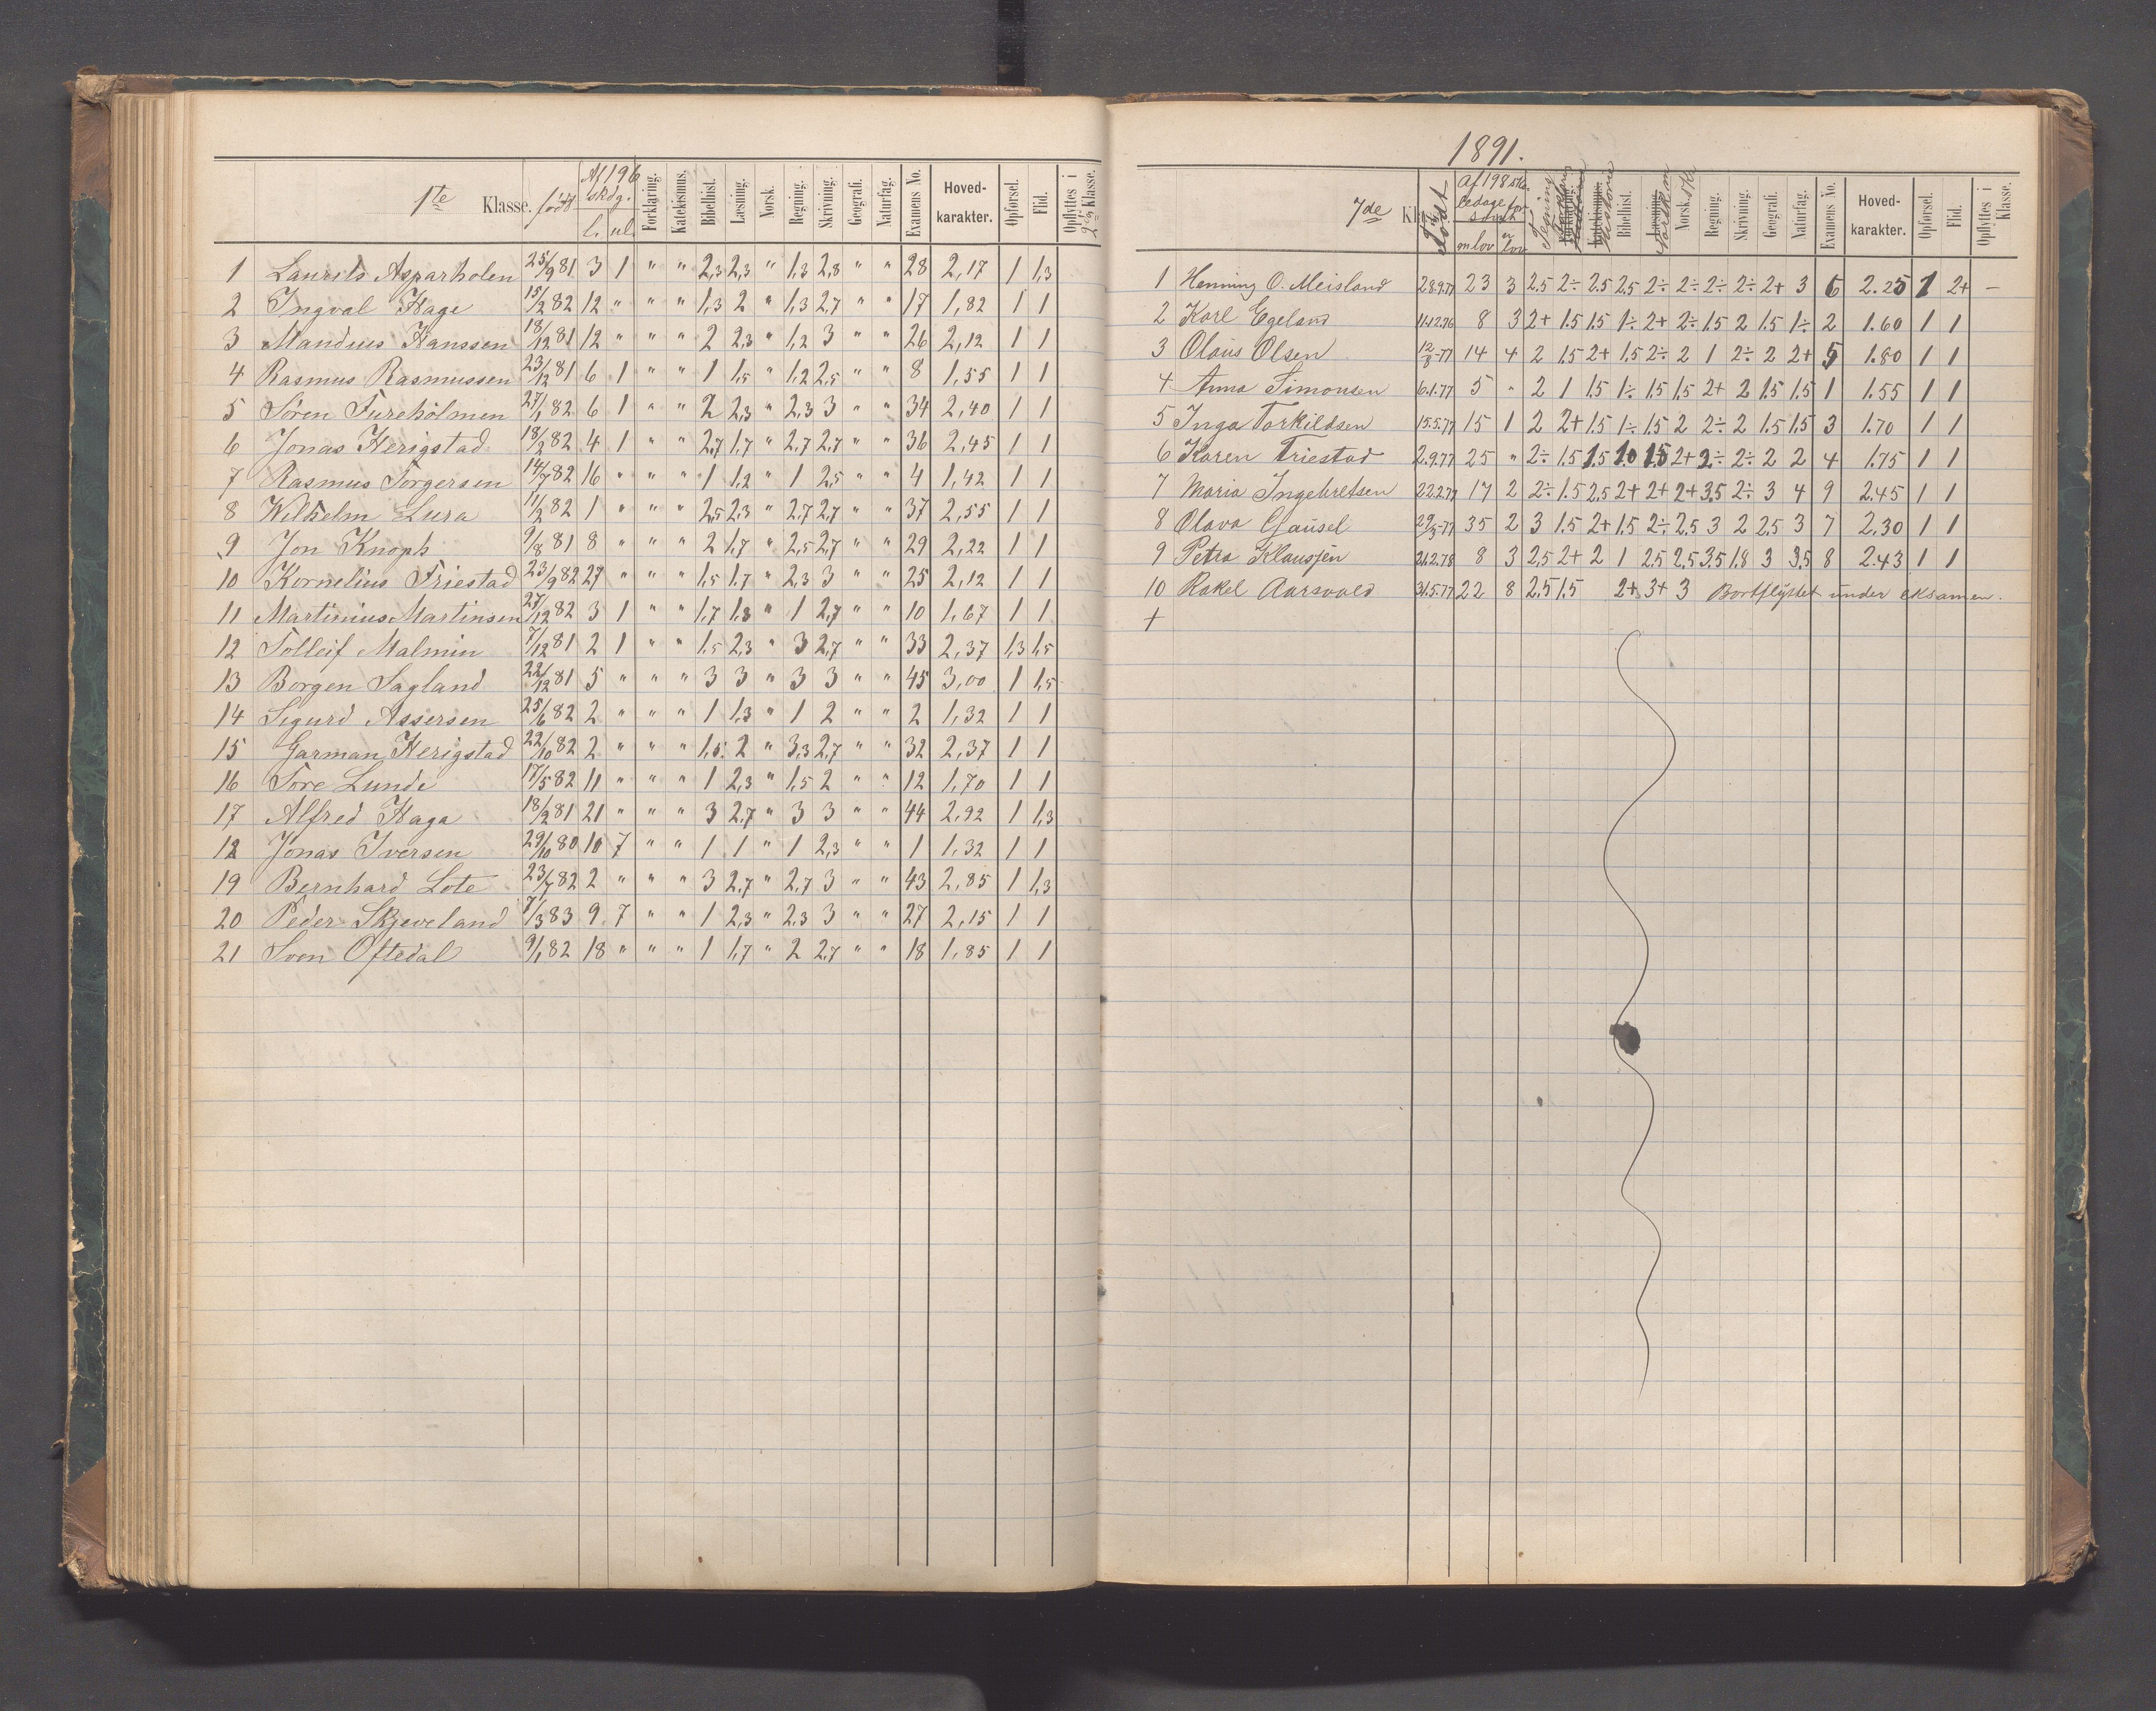 1te Klasse. født Af 196 skdg. l. ul. Forklaring. Katekismus. Bibelhist. Læsning. Norsk. Regning. Skrivning. Geografi. Naturfag. Examens No. Hoved-karakter. Opførsel. Flid. Opflyttes i 2den Klasse.
1 Laurits Asparholen 25/9 81 3 1 " " 2,3 2,3 " 1,3 2,8 " " 28 2,17 1 1,3
2 Ingval Hage 15/2 82 12 " " " 1,3 2 " 1,3 2,7 " " 17 1,82 1 1
3 Mandius Hanssen 18/12 81 12 " " " 2 2,3 " 1,2 3 " " 26 2,12 1 1
4 Rasmus Rasmussen 23/12 81 6 1 " " 1 1,5 " 1,2 2,5 " " 8 1,55 1 1
5 Søren Tureholmen 27/1 82 6 1 " " 2 2,3 " 2,3 3 " " 34 2,40 1 1
6 Jonas Herigstad 18/2 82 4 1 " " 2,7 1,7 " 2,7 2,7 " " 36 2,45 1 1
7 Rasmus Torgersen 14/7 82 16 " " " 1 1,2 " 1 2,5 " " 4 1,42 1 1
8 Wilhelm Lura 11/2 82 1 " " " 2,5 2,3 " 2,7 2,7 " " 37 2,55 1 1
9 Jon Knoph 9/8 81 8 " " " 2 1,7 " 2,5 2,7 " " 29 2,22 1 1
10 Kornelius Friestad 23/9 82 27 " " " 1,5 1,7 " 2,3 3 " " 25 2,12 1 1
11 Martinius Martinsen 27/12 82 3 1 " " 1,7 1,3 " 1 2,7 " " 10 1,67 1 1
12 Tolleif Malmin 7/12 81 2 1 " " 1,5 2,3 " 3 2,7 " " 33 2,37 1,3 1,5
13 Borgen Sagland 22/12 81 5 " " " 3 3 " 3 3 " " 45 3,00 1 1,5
14 Sigurd Assersen 25/6 82 2 " " " 1 1,3 " 1 2 " " 2 1,32 1 1
15 Garman Herigstad 22/10 82 2 " " " 1,5 2 " 3,3 2,7 " " 32 2,37 1 1
16 Tore Lunde 17/5 82 11 " " " 1 2,3 " 1,5 2 " " 12 1,70 1 1
17 Alfred Haga 18/2 81 21 " " " 3 2,7 " 3 3 " " 44 2,92 1 1,3
18 Jonas Iversen 29/10 80 10 7 " " 1 1 " 1 2,3 " " 1 1,32 1 1
19 Bernhard Lote 23/7 82 2 " " " 3 2,7 " 2,7 3 " " 43 2,85 1 1,3
20 Peder Skjeveland 7/3 83 9 7 " " 1 2,3 " 2,3 3 " " 27 2,15 1 1
21 Sven Oftedal 9/1 82 18 " " " 1 1,7 " 2 2,7 " " 18 1,85 1 1
1891.
7de Kl Født Af 198 skoledage forsømt m lov u lov Tegning Historie Bibelhist. Norsk skr Regning. Skrivning. Geografi. Naturfag. Examens No. Hoved-karakter. Opførsel. Flid. Opflyttes i Klasse.
1 Henning O. Meisland 28.9.77 23 3 2.5 2÷ 2.5 2.5 2÷ 2÷ 2÷ 2÷ 2+ 3 6 2.25 1 2+ –
2 Karl Egeland 11.12.76 8 3 2+ 1.5 1.5 1÷ 2+ 2÷ 1.5 2 1.5 1÷ 2 1.60 1 1
3 Olaus Olsen 12/8-77 14 4 2 1.5 2+ 1.5 2÷ 2 1 2÷ 2 2+ 5 1.80 1 1
4 Anna Simonsen 6.1.77 5 " 2 1 1.5 1÷ 1.5 1.5 2+ 2 1.5 1.5 1 1.55 1 1
5 Inga Torkildsen 15.5.77 15 1 2 2+ 1.5 1÷ 1.5 2 2÷ 2 1.5 1.5 3 1.70 1 1
6 Karen Friestad 2.9.77 25 " 2÷ 1.5 1.5 1.0 1.5 2+ 2÷ 2÷ 2 2 4 1.75 1 1
7 Maria Ingebretsen 22.2.77 17 2 2÷ 1.5 2.5 2+ 2+ 2+ 3.5 2÷ 3 4 9 2.45 1 1
8 Olava Gausel 29/3-77 35 2 3 1.5 2+ 1.5 2÷ 2.5 3 2 2.5 3 7 2.30 1 1
9 Petra Klausen 21.2.78 8 3 2.5 2+ 2 1 2.5 2.5 3.5 1.8 3 3.5 8 2.43 1 1
10 Rakel Aarsvold 31.5.77 22 8 2.5 1.5 2+ 3+ 3 Bortflyttet under eksamen.
+